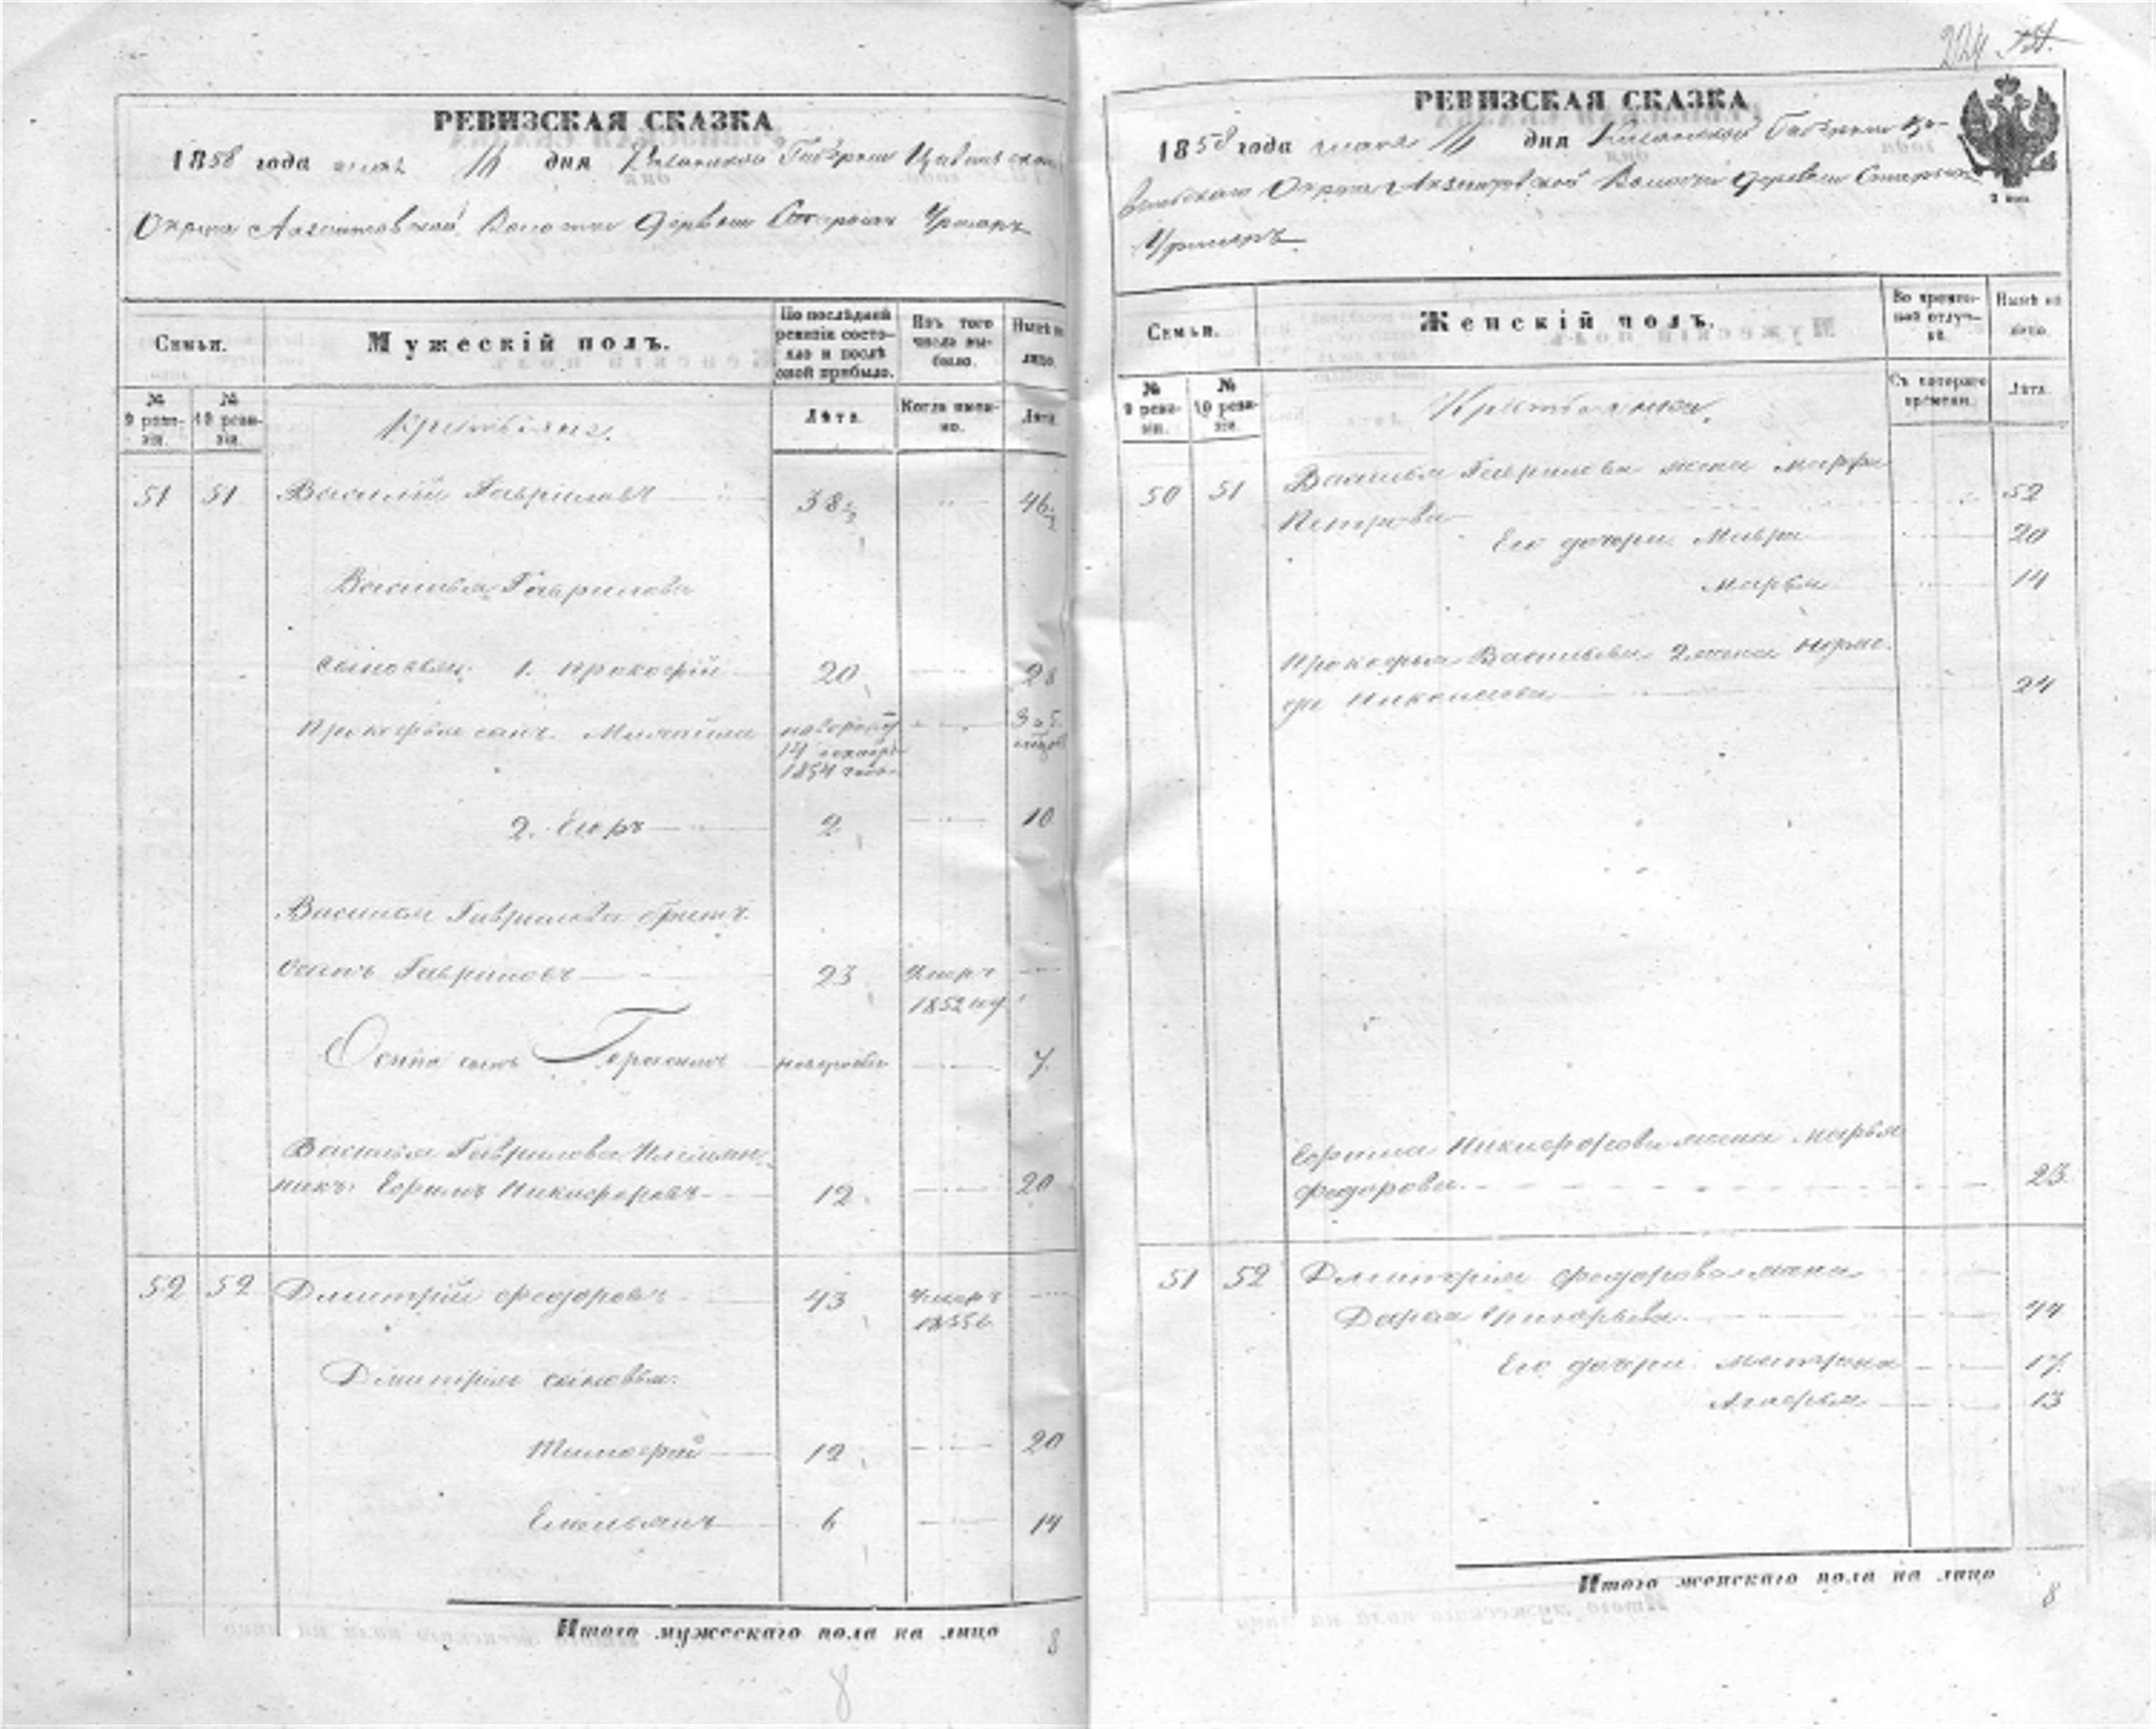 РЕВИЗСКАЯ СКАЗКА
1858 года мая дня Казанской Губернии Цивильскаго
Округа Волости Деревни Старыхъ Урмаръ
Семьи.
Мужескій полъ.
По послѣдней ревизіи состо-
яло и послѣ
оной прибыло.
Изъ того
числа вы-
было.
Нынѣ на
лицо.
№
9 реви-
зіи.
№
10 реви-
зіи.
Крестьяне.
Лѣта.
Когда имен-
но.
Лѣта.
51 51 Василій Гавриловъ 38½ 46½
Василья Гаврилова
сыновья: 1. Прокофій 20 28
Прокофья сынъ Михайла
1854 года
2. Егоръ 2 10
Василья Гаврилова братъ
Осипъ Гавриловъ 23 умеръ
1852 году
Осипа сынъ Герасимъ новорожд 7
Василья Гаврилова племян-
никъ Ефримъ Никифоровъ 12 20
52 52 Дмитрій Федоровъ 43 умеръ
1855
Дмитрія сыновья:
Тимофей 12 20
Емельянъ 6 14
Итого мужескаго пола на лицо 8
8
224
РЕВИЗСКАЯ СКАЗКА
1858 года мая дня Казанской Губерніи Ци-
вильскаго Округа Волости Деревни Старыхъ
Урмаръ
Семьи.
Женскій полъ.
Во времен-
ной отлуч-
кѣ.
Нынѣ на
лицо.
№
9 реви-
зіи.
№
10 реви-
зіи.
Крестьянки.
Съ котораго
времени.
Лѣта.
50 51 Василья Гаврилова жена Марфа
Петрова 52
Его дочери Мавра 20
Марья 14
Прокофья Васильева 2 жена
24
Ефрима Никифорова жена Марья
Федорова 23
51 52 Дмитрія Федорова жена
Дарья Григорьева 44
Его дочери Матрона 17
Агафья 13
Итого женскаго пола на лицо 8